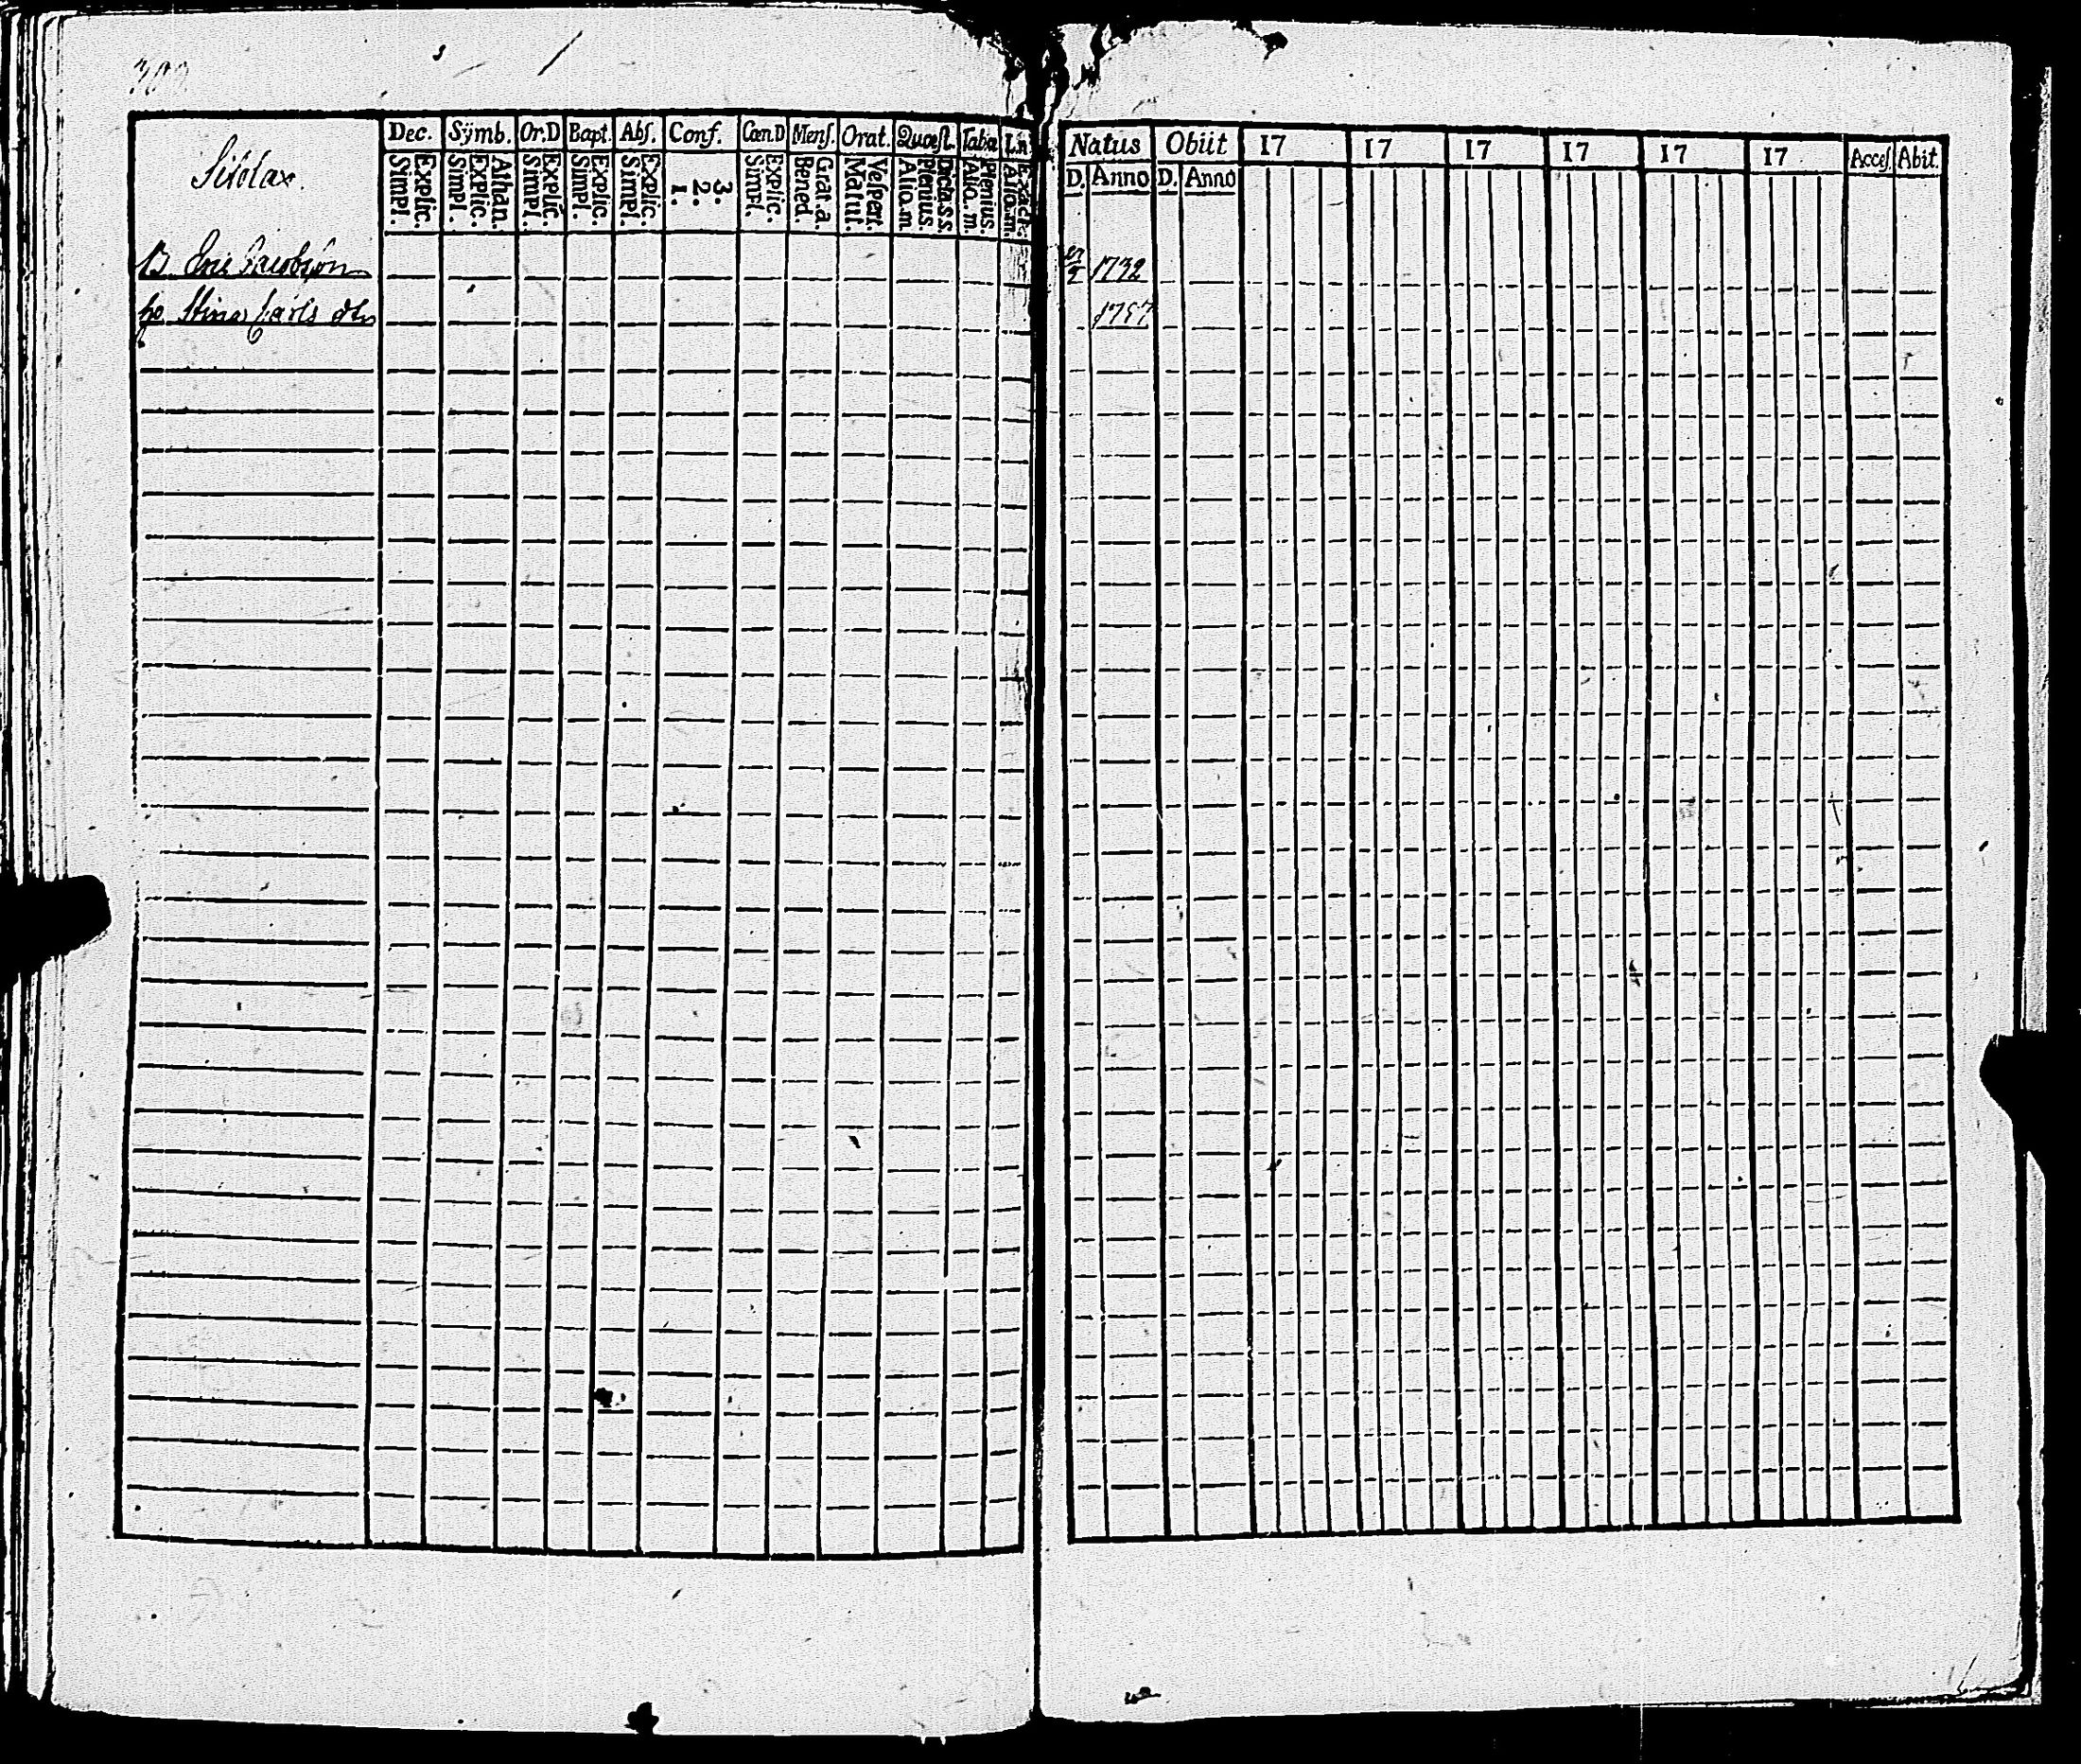 302
Sitolax.
Dec. Sÿmb. Or.D Bapt. Abſ. Conf. Can.D Menſ. Orat. Quæſt. Taba
Explic. Simpl. Athan. Explic. Simpl. Explic. Simpl. Explic. Simpl. Explic. Simpl. 3. 2. 1. Explic. Simpl. Grat.a. Bened. Veſpert. Matut. Dicta.s.s. Plenius. Alio.m Plenius. Alio.m Exacte. Alio.m.
B Eric Jacobſon
ho Stina Carls dtr
Natus Obiit 17 17 17 17 17 17 Acceſ. Abit.
D. Anno D. Anno
1732
1757